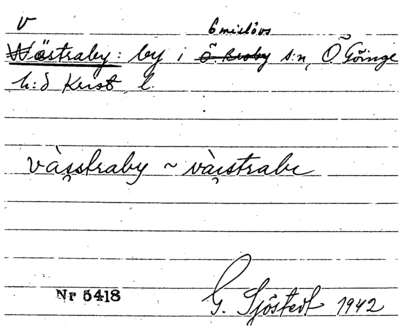 V Emislövs
Wästraby: by i Ö. Broby s:n, Ö Göinge
h:d Krist. l.
vàsstraby ~ vàistrabe
Nr 5418 G. Sjöstedt 1942